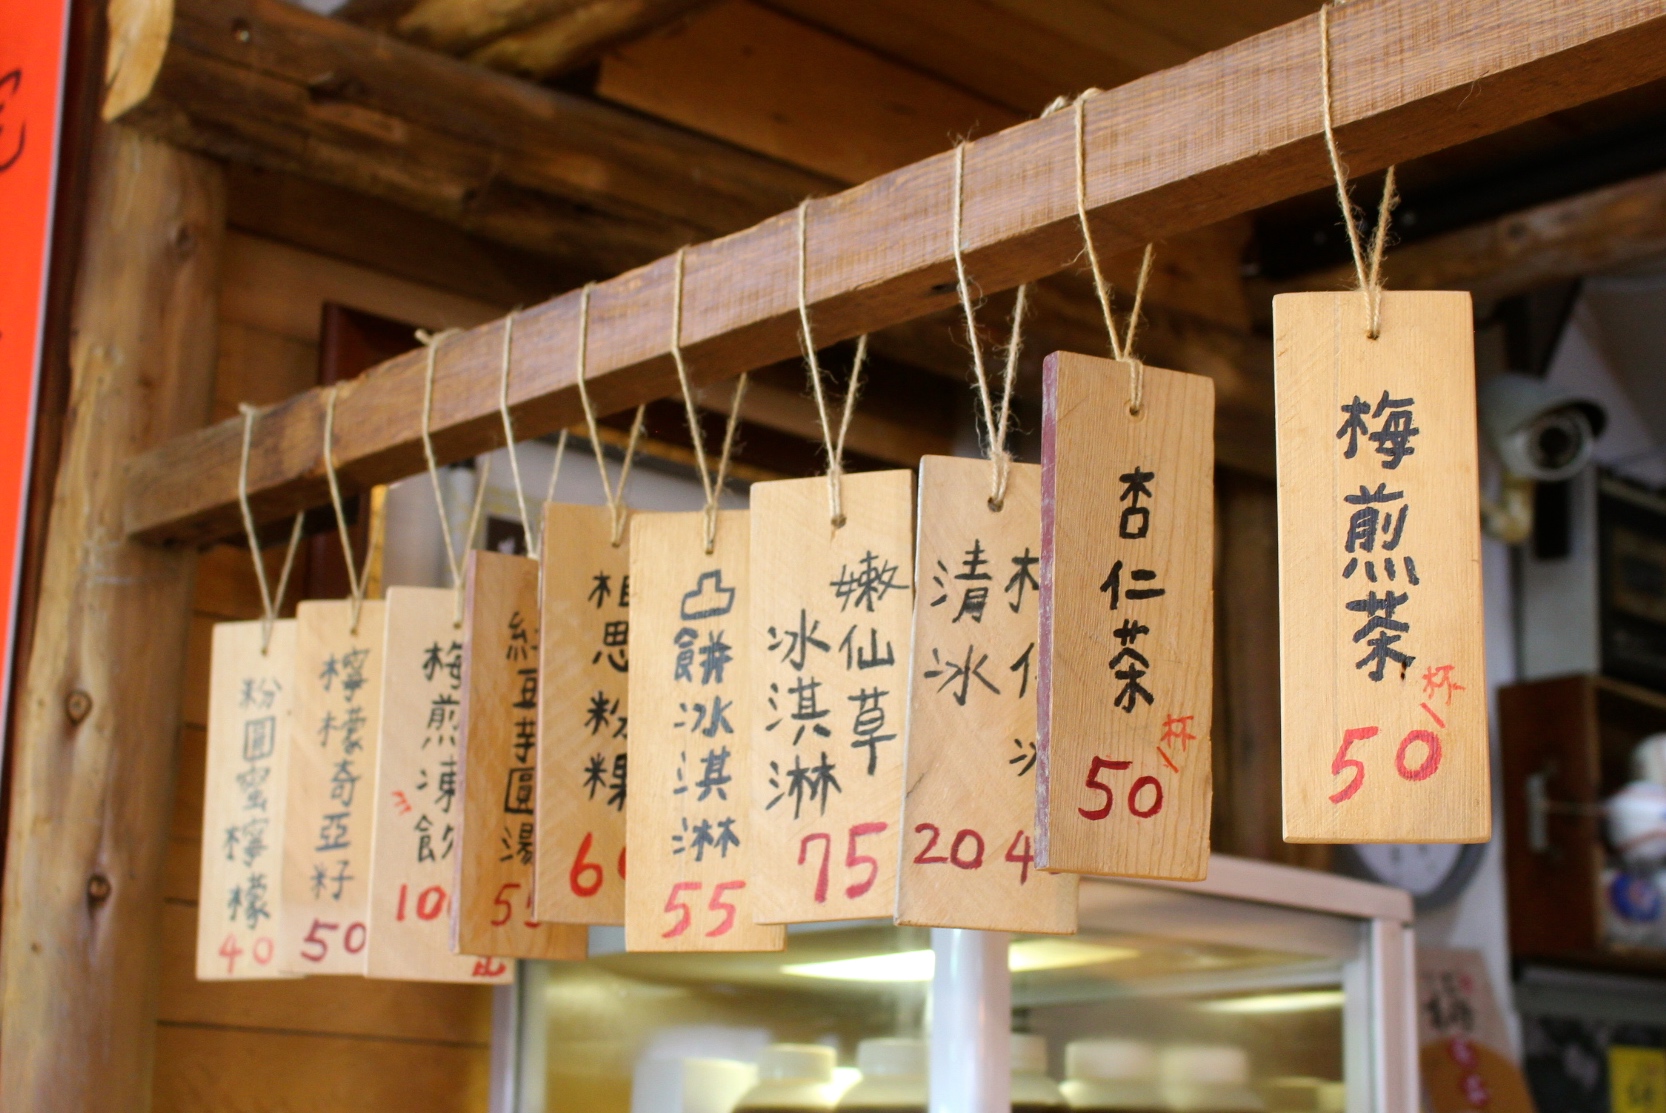 梅煎茶
50/杯
杏仁茶
50/杯
清冰
20
嫩仙草
冰淇淋
75
凸餅冰淇淋
55
相思粉粿
6
紅豆芋圓湯
55
梅煎凍飲
100
檸檬奇亞籽
50
粉圓蜜檸檬
40